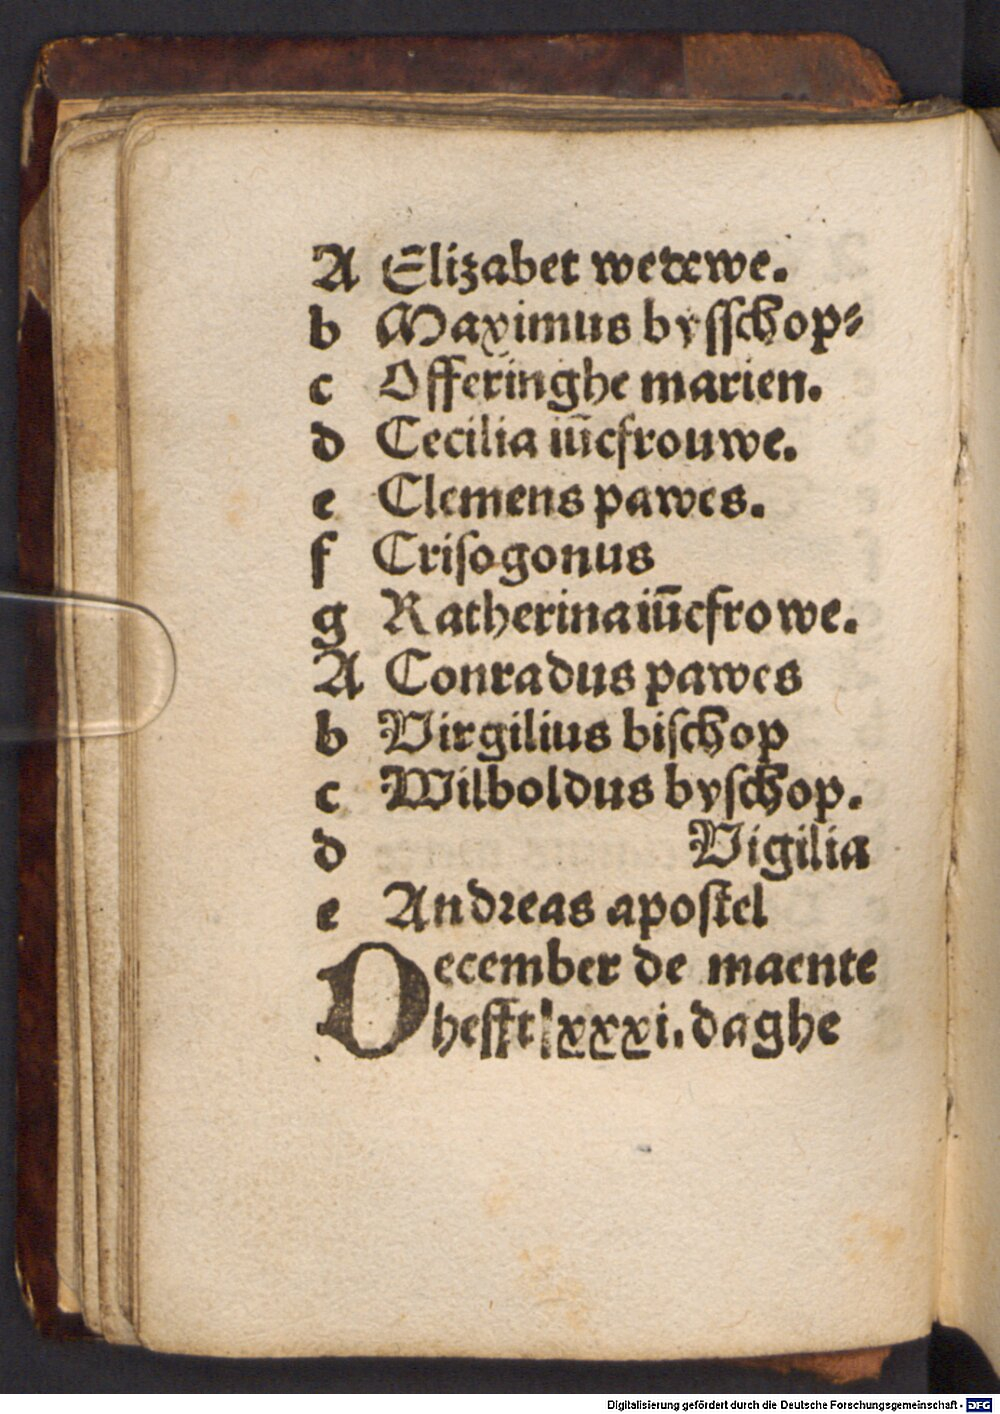 A Elizabet wedewe.
b Maximus bysschop⸗
c Offeringhe marien.
d Cecilia iūcfrouwe.
e Clemens pawes.
f Crisogonus
g Katherina iūcfrowe.
A Conradus pawes
b Virgilius bischop
c Wilboldus byschop.
d Vigilia
e Andreas apostel
December de maente
hefft xxxi. daghe
Digitalisierung gefördert durch die Deutsche Forschungsgemeinschaft - DFG